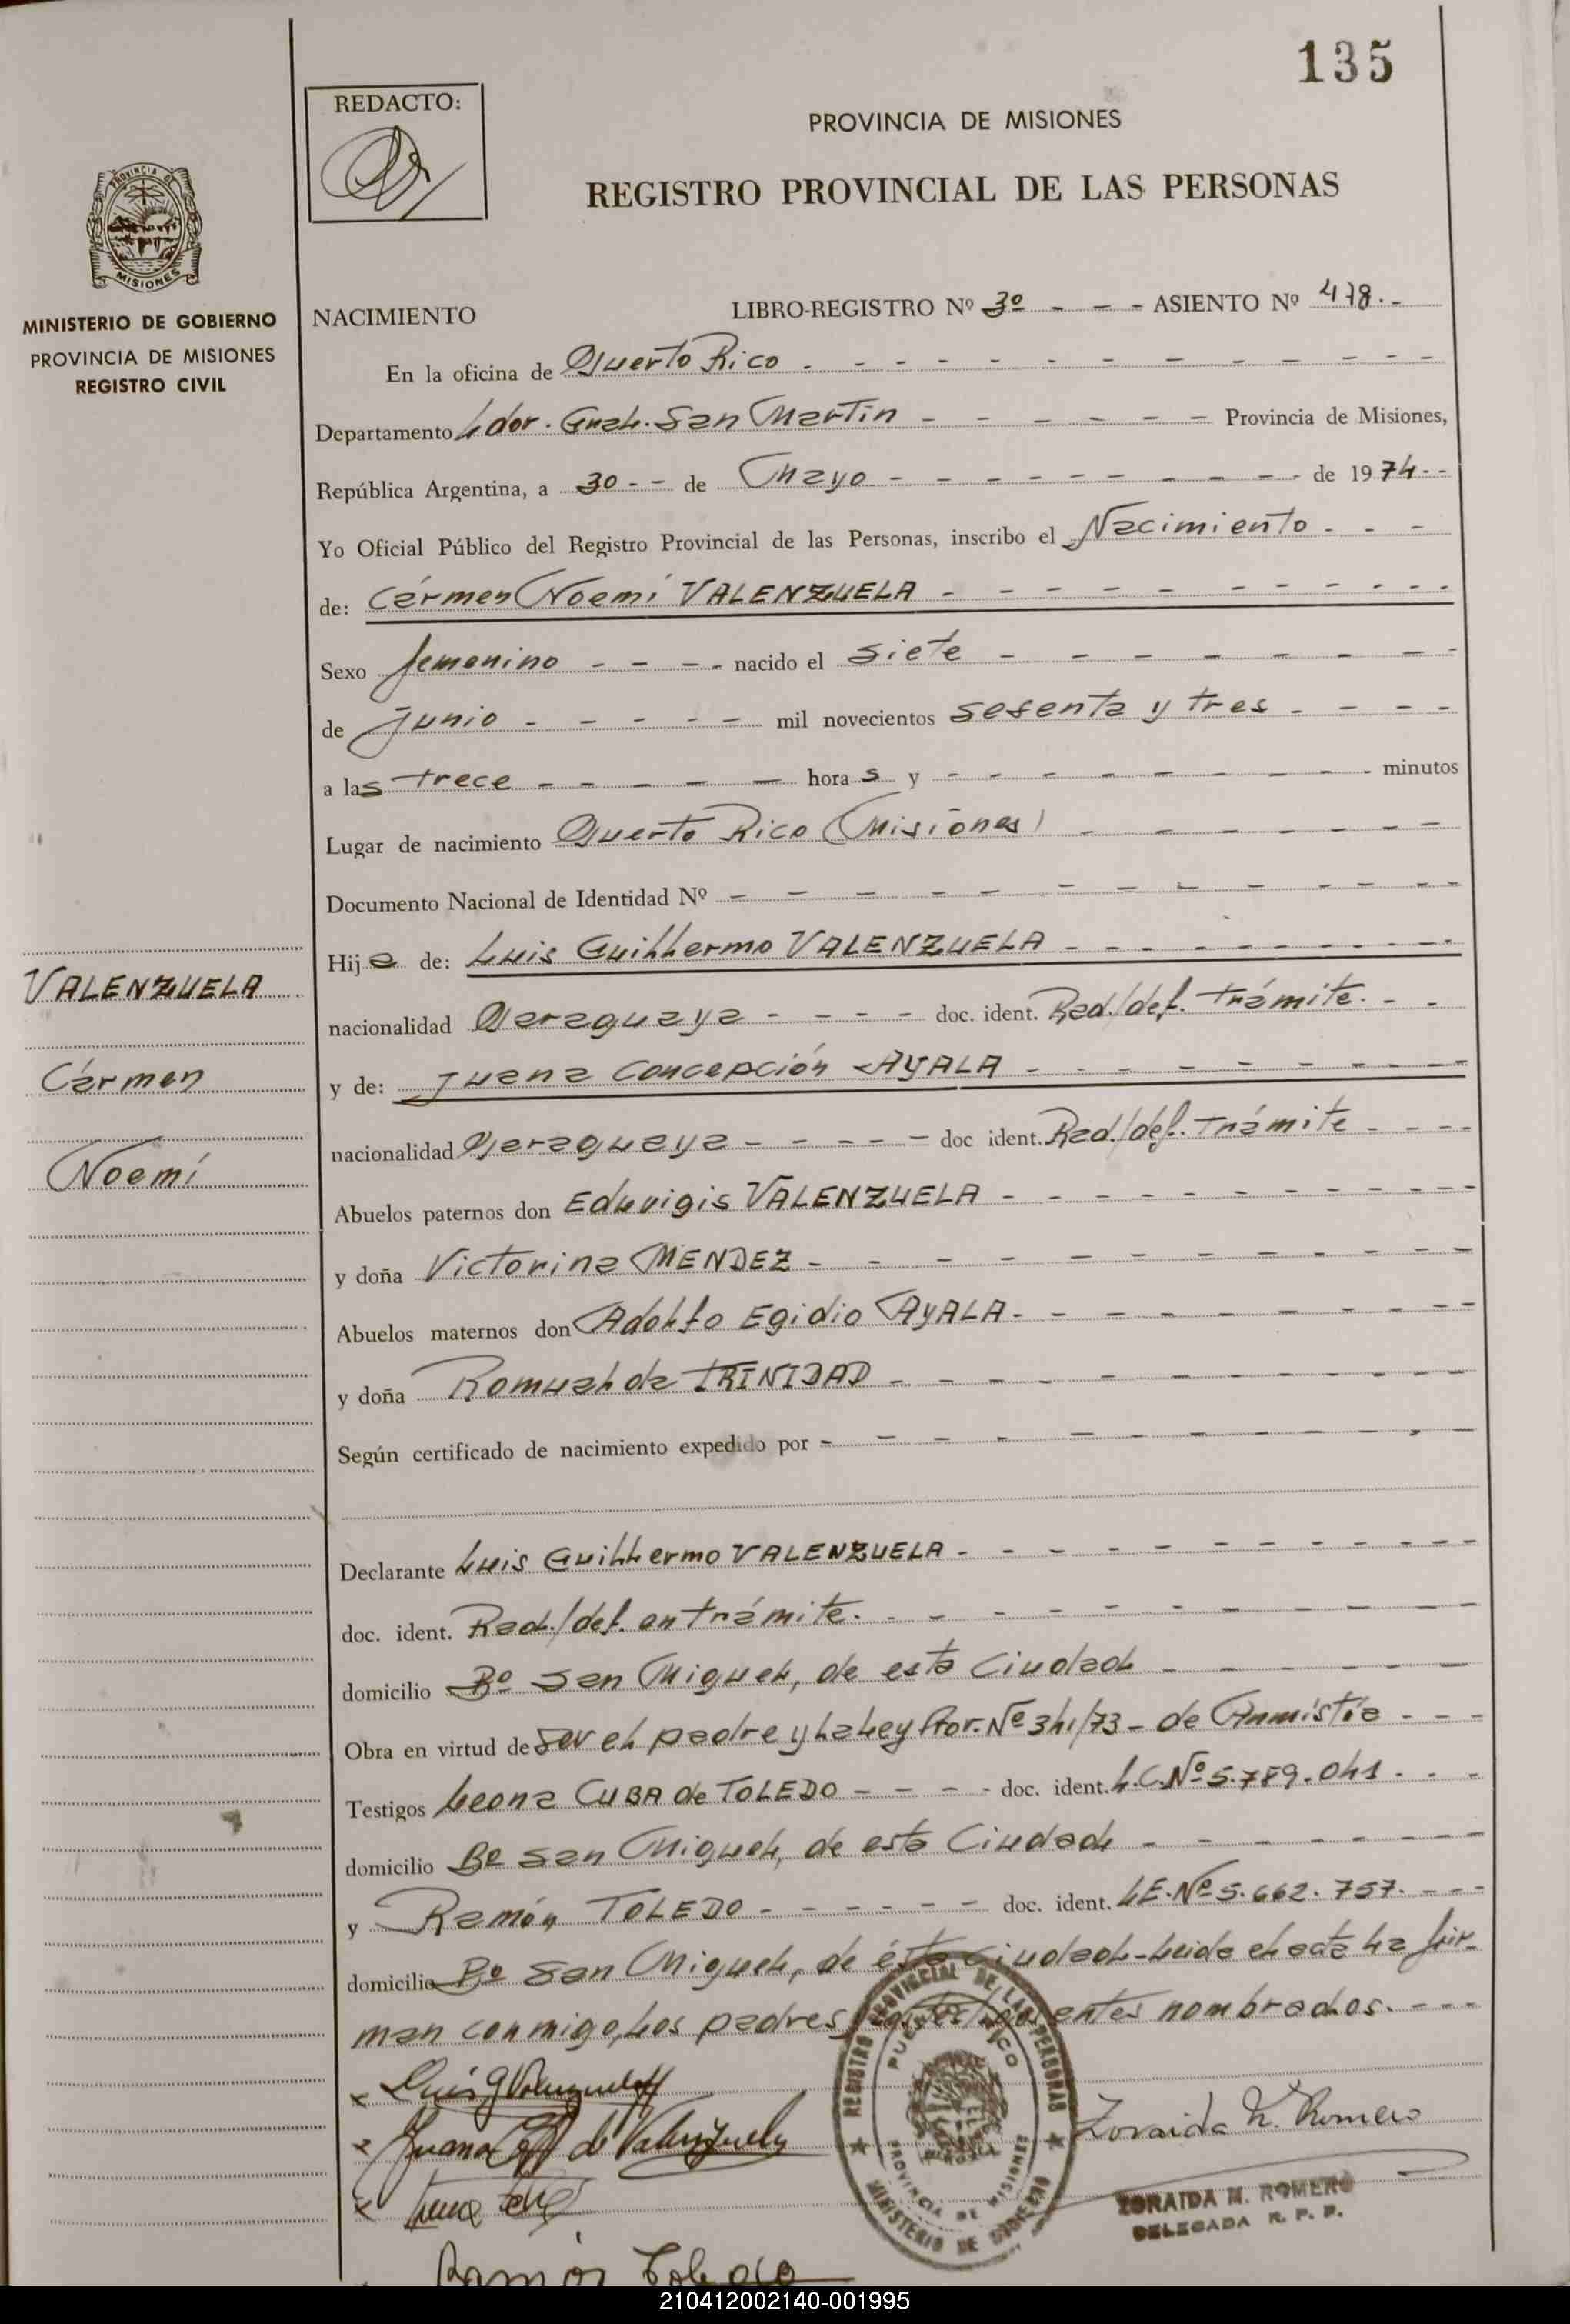 135
REDACTO:
PROVINCIA DE MISIONES
REGISTRO PROVINCIAL DE LAS PERSONAS
PROVINCIA DE
MISIONES
MINISTERIO DE GOBIERNO
PROVINCIA DE MISIONES
REGISTRO CIVIL
NACIMIENTO LIBRO-REGISTRO Nº 3º - - - ASIENTO Nº 478.-
En la oficina de Puerto Rico - - - - - - - - - - -
Departamento Ldor. Gral. San Martín - - - - - - Provincia de Misiones,
República Argentina, a 30 - - de Mayo - - - - - - - - - de 1974 - -
Yo Oficial Público del Registro Provincial de las Personas, inscribo el Nacimiento - - -
de: Cármen Noemí VALENZUELA - - - - - - - - - -
Sexo femenino - - - - nacido el siete - - - - - - - -
de junio - - - - - mil novecientos sesenta y tres - - - -
a las trece - - - - - hora s y - - - - - - - - - minutos
Lugar de nacimiento Puerto Rico (Misiones) - - - - - - -
Documento Nacional de Identidad Nº - - - - - - - - - - - -
VALENZUELA
Cármen
Noemí
Hij a de: Luis Guillermo VALENZUELA - - - - - - - - - -
nacionalidad Paraguaya - - - - doc. ident. Rad./def. trámite. - -
y de: Juana Concepción AYALA - - - - - - - - -
nacionalidad Paraguaya - - - - - doc ident. Rad./def. trámite - - - -
Abuelos paternos don Eduvigis VALENZUELA - - - - - - - - - -
y doña Victorina MENDEZ - - - - - - - - - - -
Abuelos maternos don Adolfo Egidio AYALA - - - - - - - - -
y doña Romualda TRINIDAD - - - - - - - - - -
Según certificado de nacimiento expedido por - - - - - - - - - - -
Declarante Luis Guillermo VALENZUELA - - - - - - - - - - -
doc. ident. Rad./def. en trámite. - - - - - - - - - -
domicilio Bº San Miguel, de esta Ciudad - - - - - -
Obra en virtud de ser el padre y la Ley Pror. Nº 341/73 - de Amnistía - - -
Testigos Leona CUBA de TOLEDO - - - - doc. ident. L.C. Nº 5.789.041. - -
domicilio Bº San Miguel, de esta Ciudad - - - - - - - -
y Ramón TOLEDO - - - - - - doc. ident. L.E. Nº 5.662.757. - - -
domicilio Bº San Miguel, de ésta Ciudad-Leida el acta la fir-
man conmigo, los padres y los testigos antes nombrados. - - -
REGISTRO PROVINCIAL DE LAS PERSONAS
PUERTO RICO
PROVINCIA DE MISIONES
MINISTERIO DE GOBIERNO
x Luis G Valenzuela
x Juana de Valenzuela
x
Zoraida N. Romero
ZORAIDA N. ROMERO
DELEGADA R. P. P.
Ramón Toledo
210412002140-001995